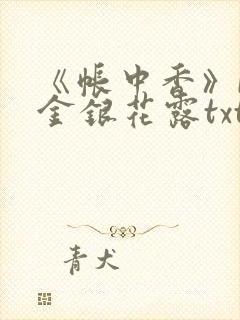 《帐中香》
金银花露txt
青犬